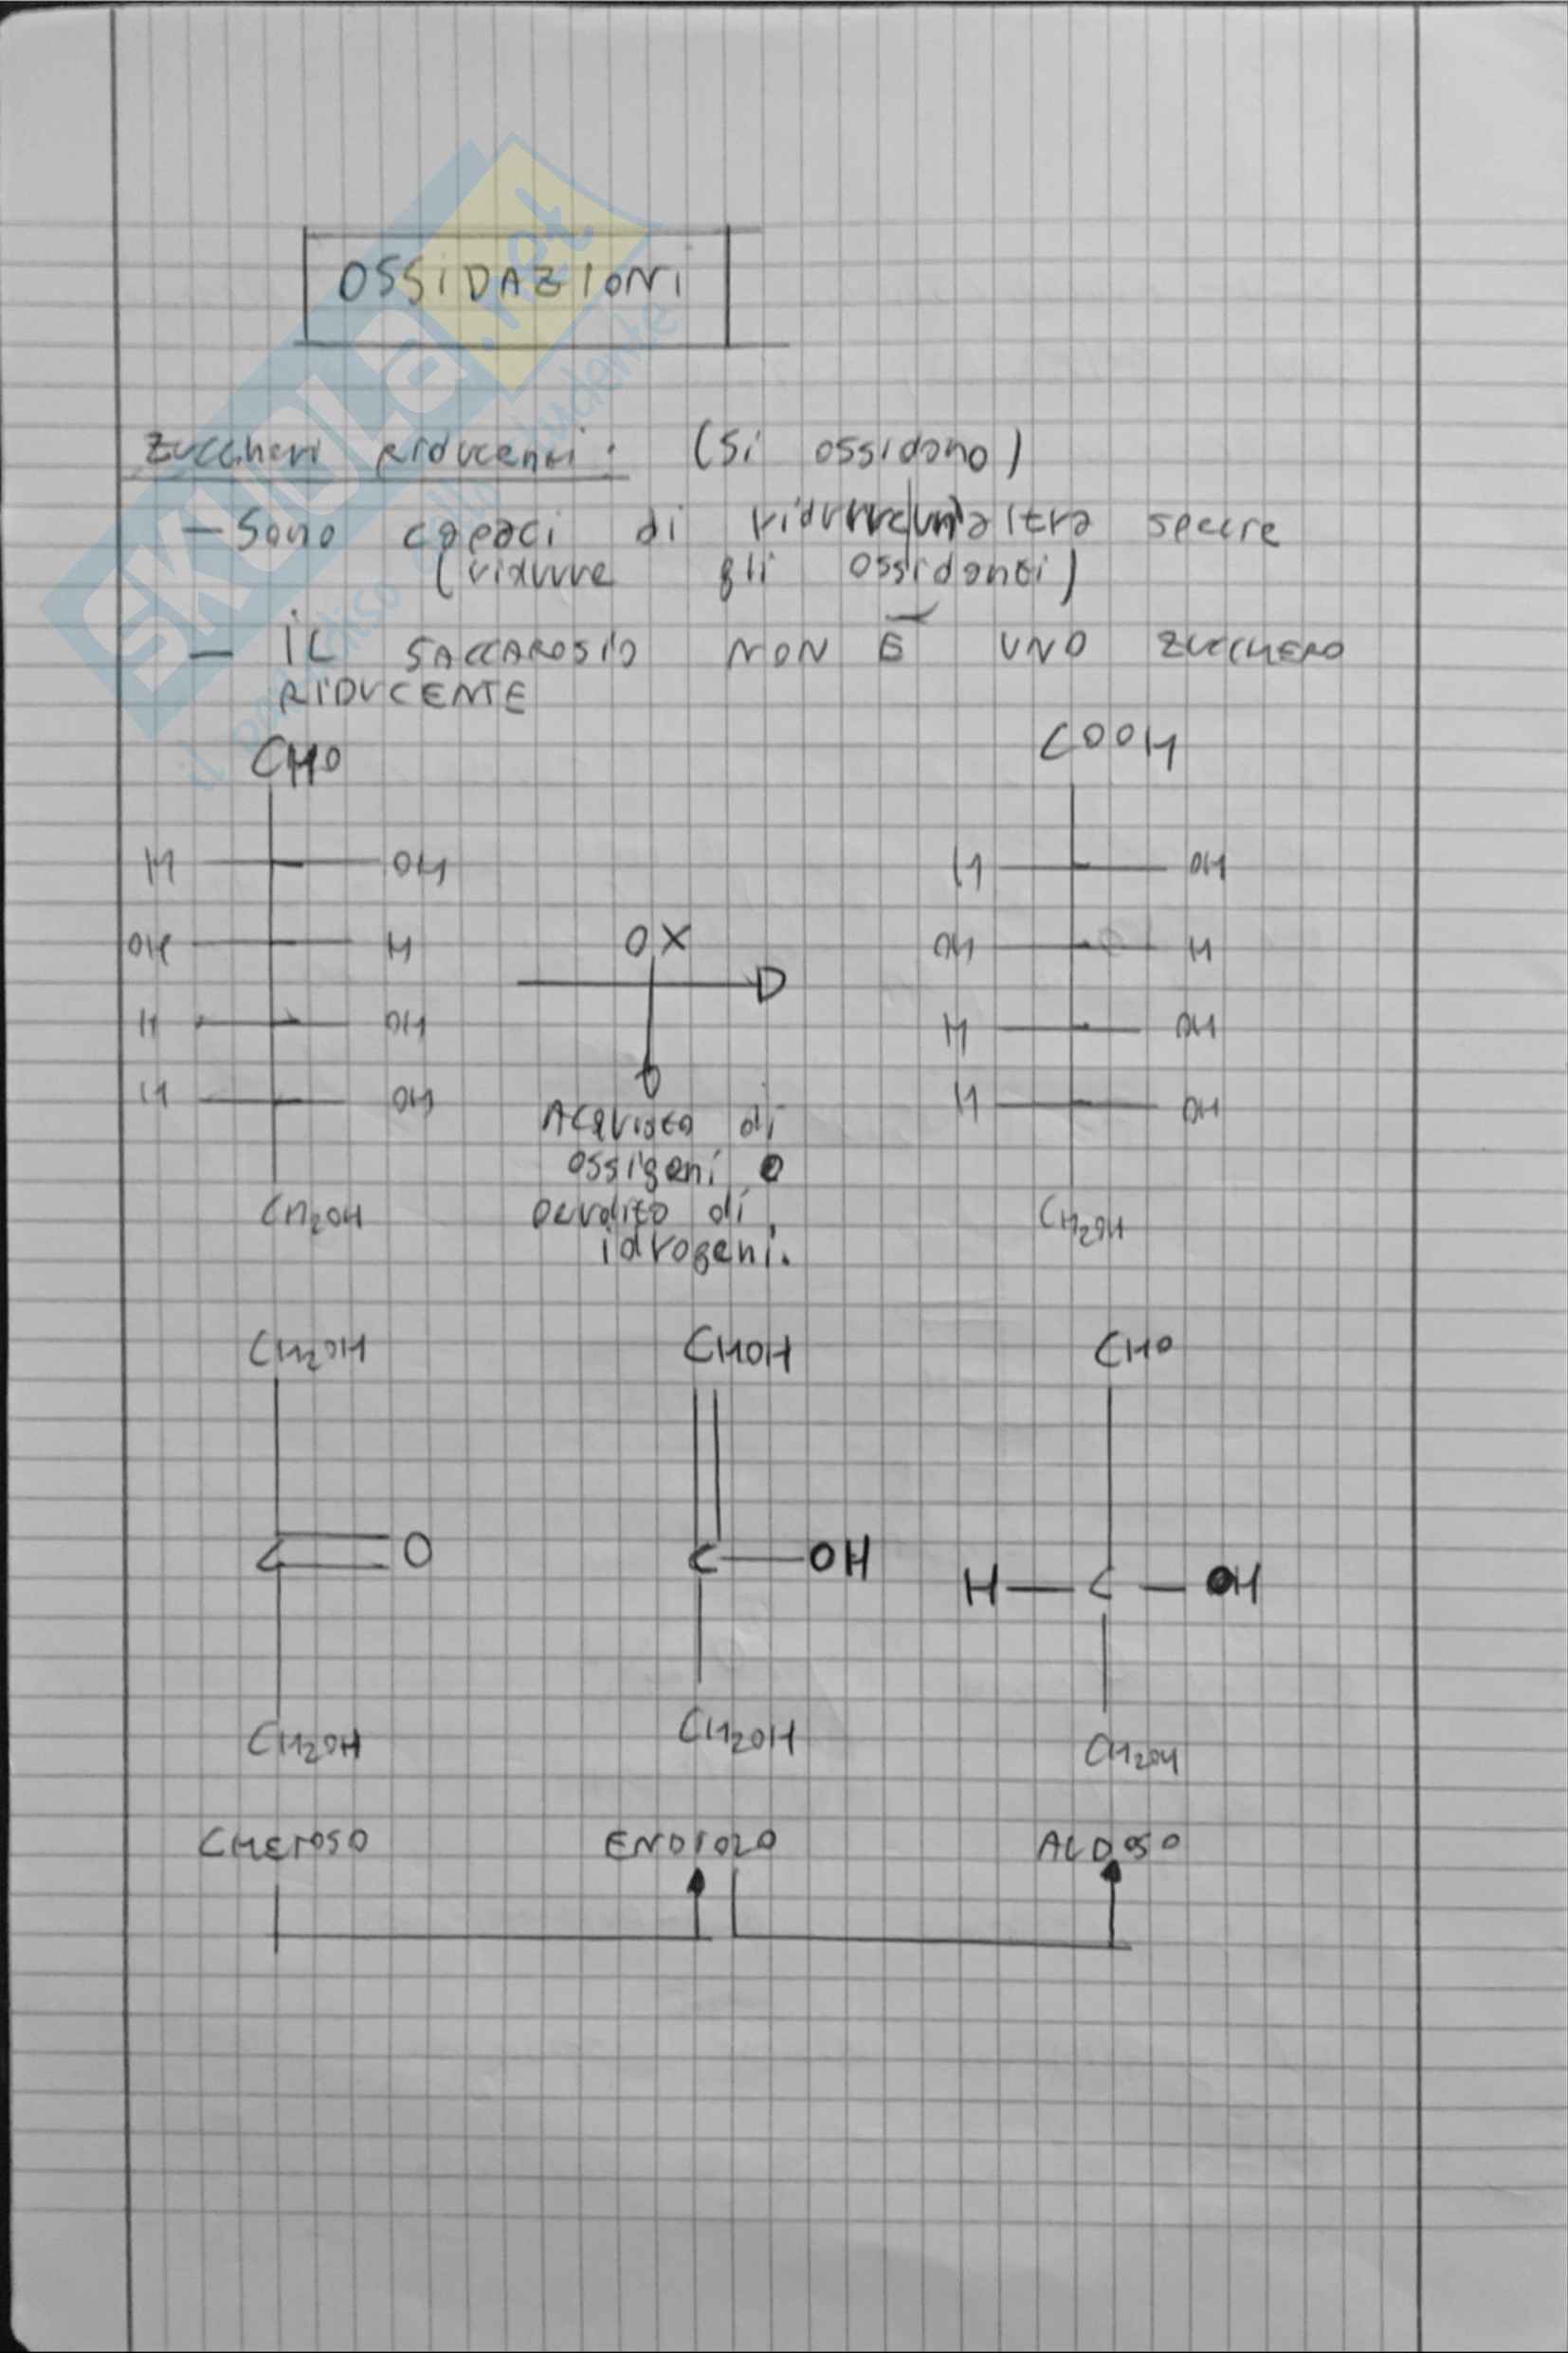 OSSIDAZIONI
Zuccheri Riducenti: (Si ossidano)
- Sono capaci di ridurre un'altra specie
(ridurre gli ossidanti)
- IL SACCAROSIO NON È UNO ZUCCHERO
RIDUCENTE
CHO COOH
H OH H OH
OH H OX OH H
H OH H OH
H OH H OH
Acquisto di
ossigeni o
perdita di
idrogeni.
CH2OH CH2OH
CH2OH CHOH CHO
C=O C-OH H-C-OH
CH2OH CH2OH CH2OH
CHETOSO ENDIOLO ALDOSO
SKUOLA.net
il paradiso dello studente